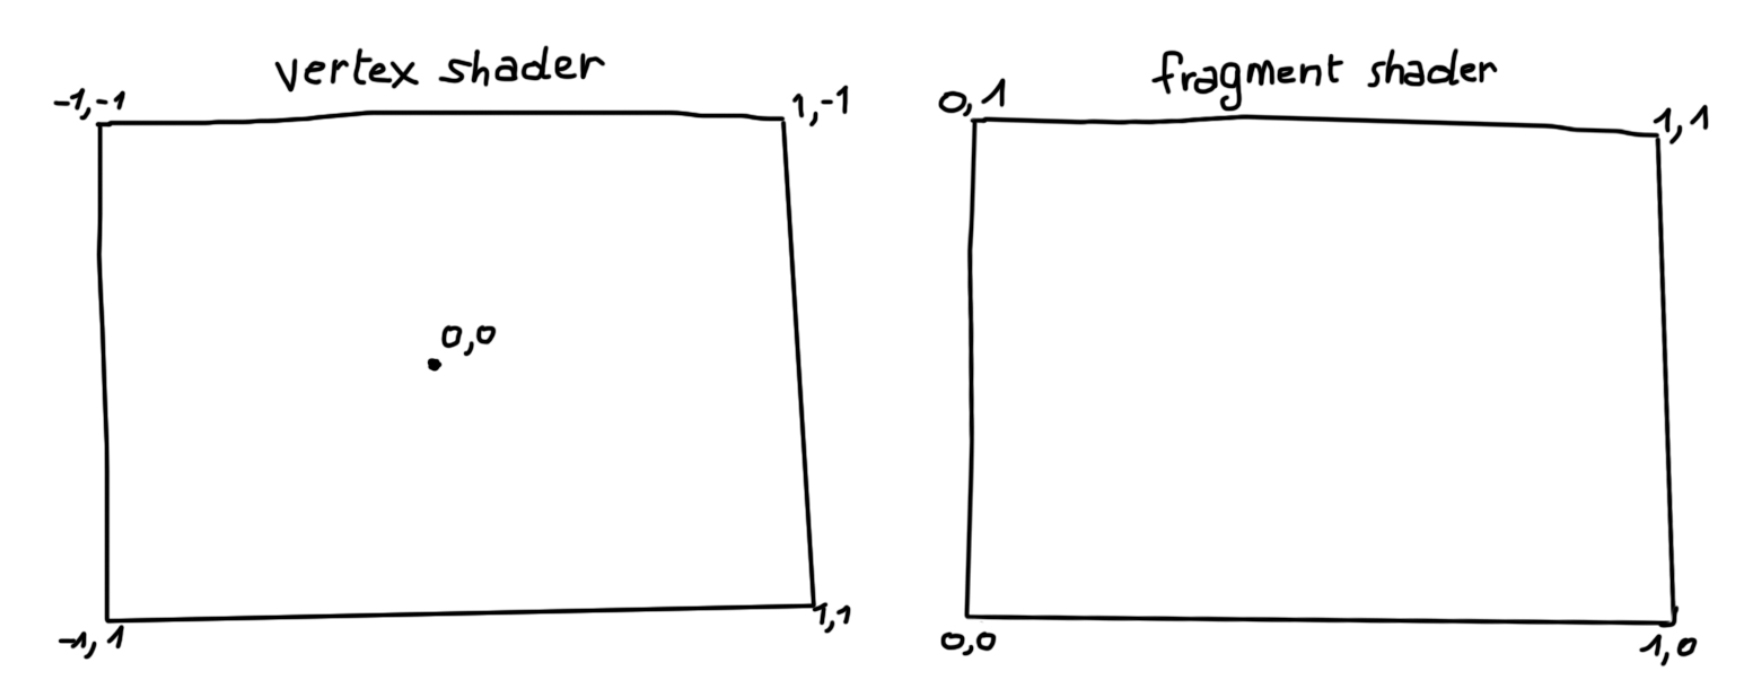 vertex shader
-1,-1
1,-1
0,0
-1,1
1,1
fragment shader
0,1
1,1
0,0
1,0